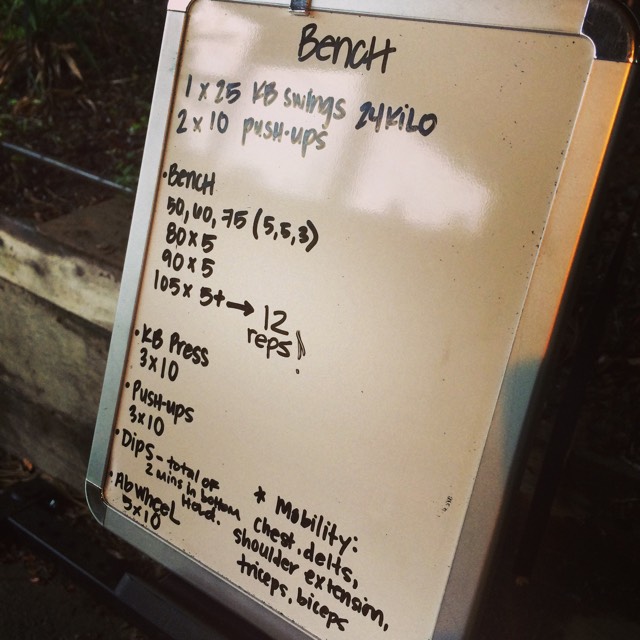 BENCH
1 x 25 KB SWINGS 24 KILO
2 x 10 PUSH-UPS
• BENCH
50, 60, 75 (5,5,3)
80 x 5
90 x 5
105 x 5+ → 12
reps!
• KB Press
3x10
• PUSH-UPS
3x10
• DIPS - total of
2 mins in bottom
Hold.
• Ab Wheel
3x10
* Mobility:
chest, delts,
shoulder extension,
triceps, biceps